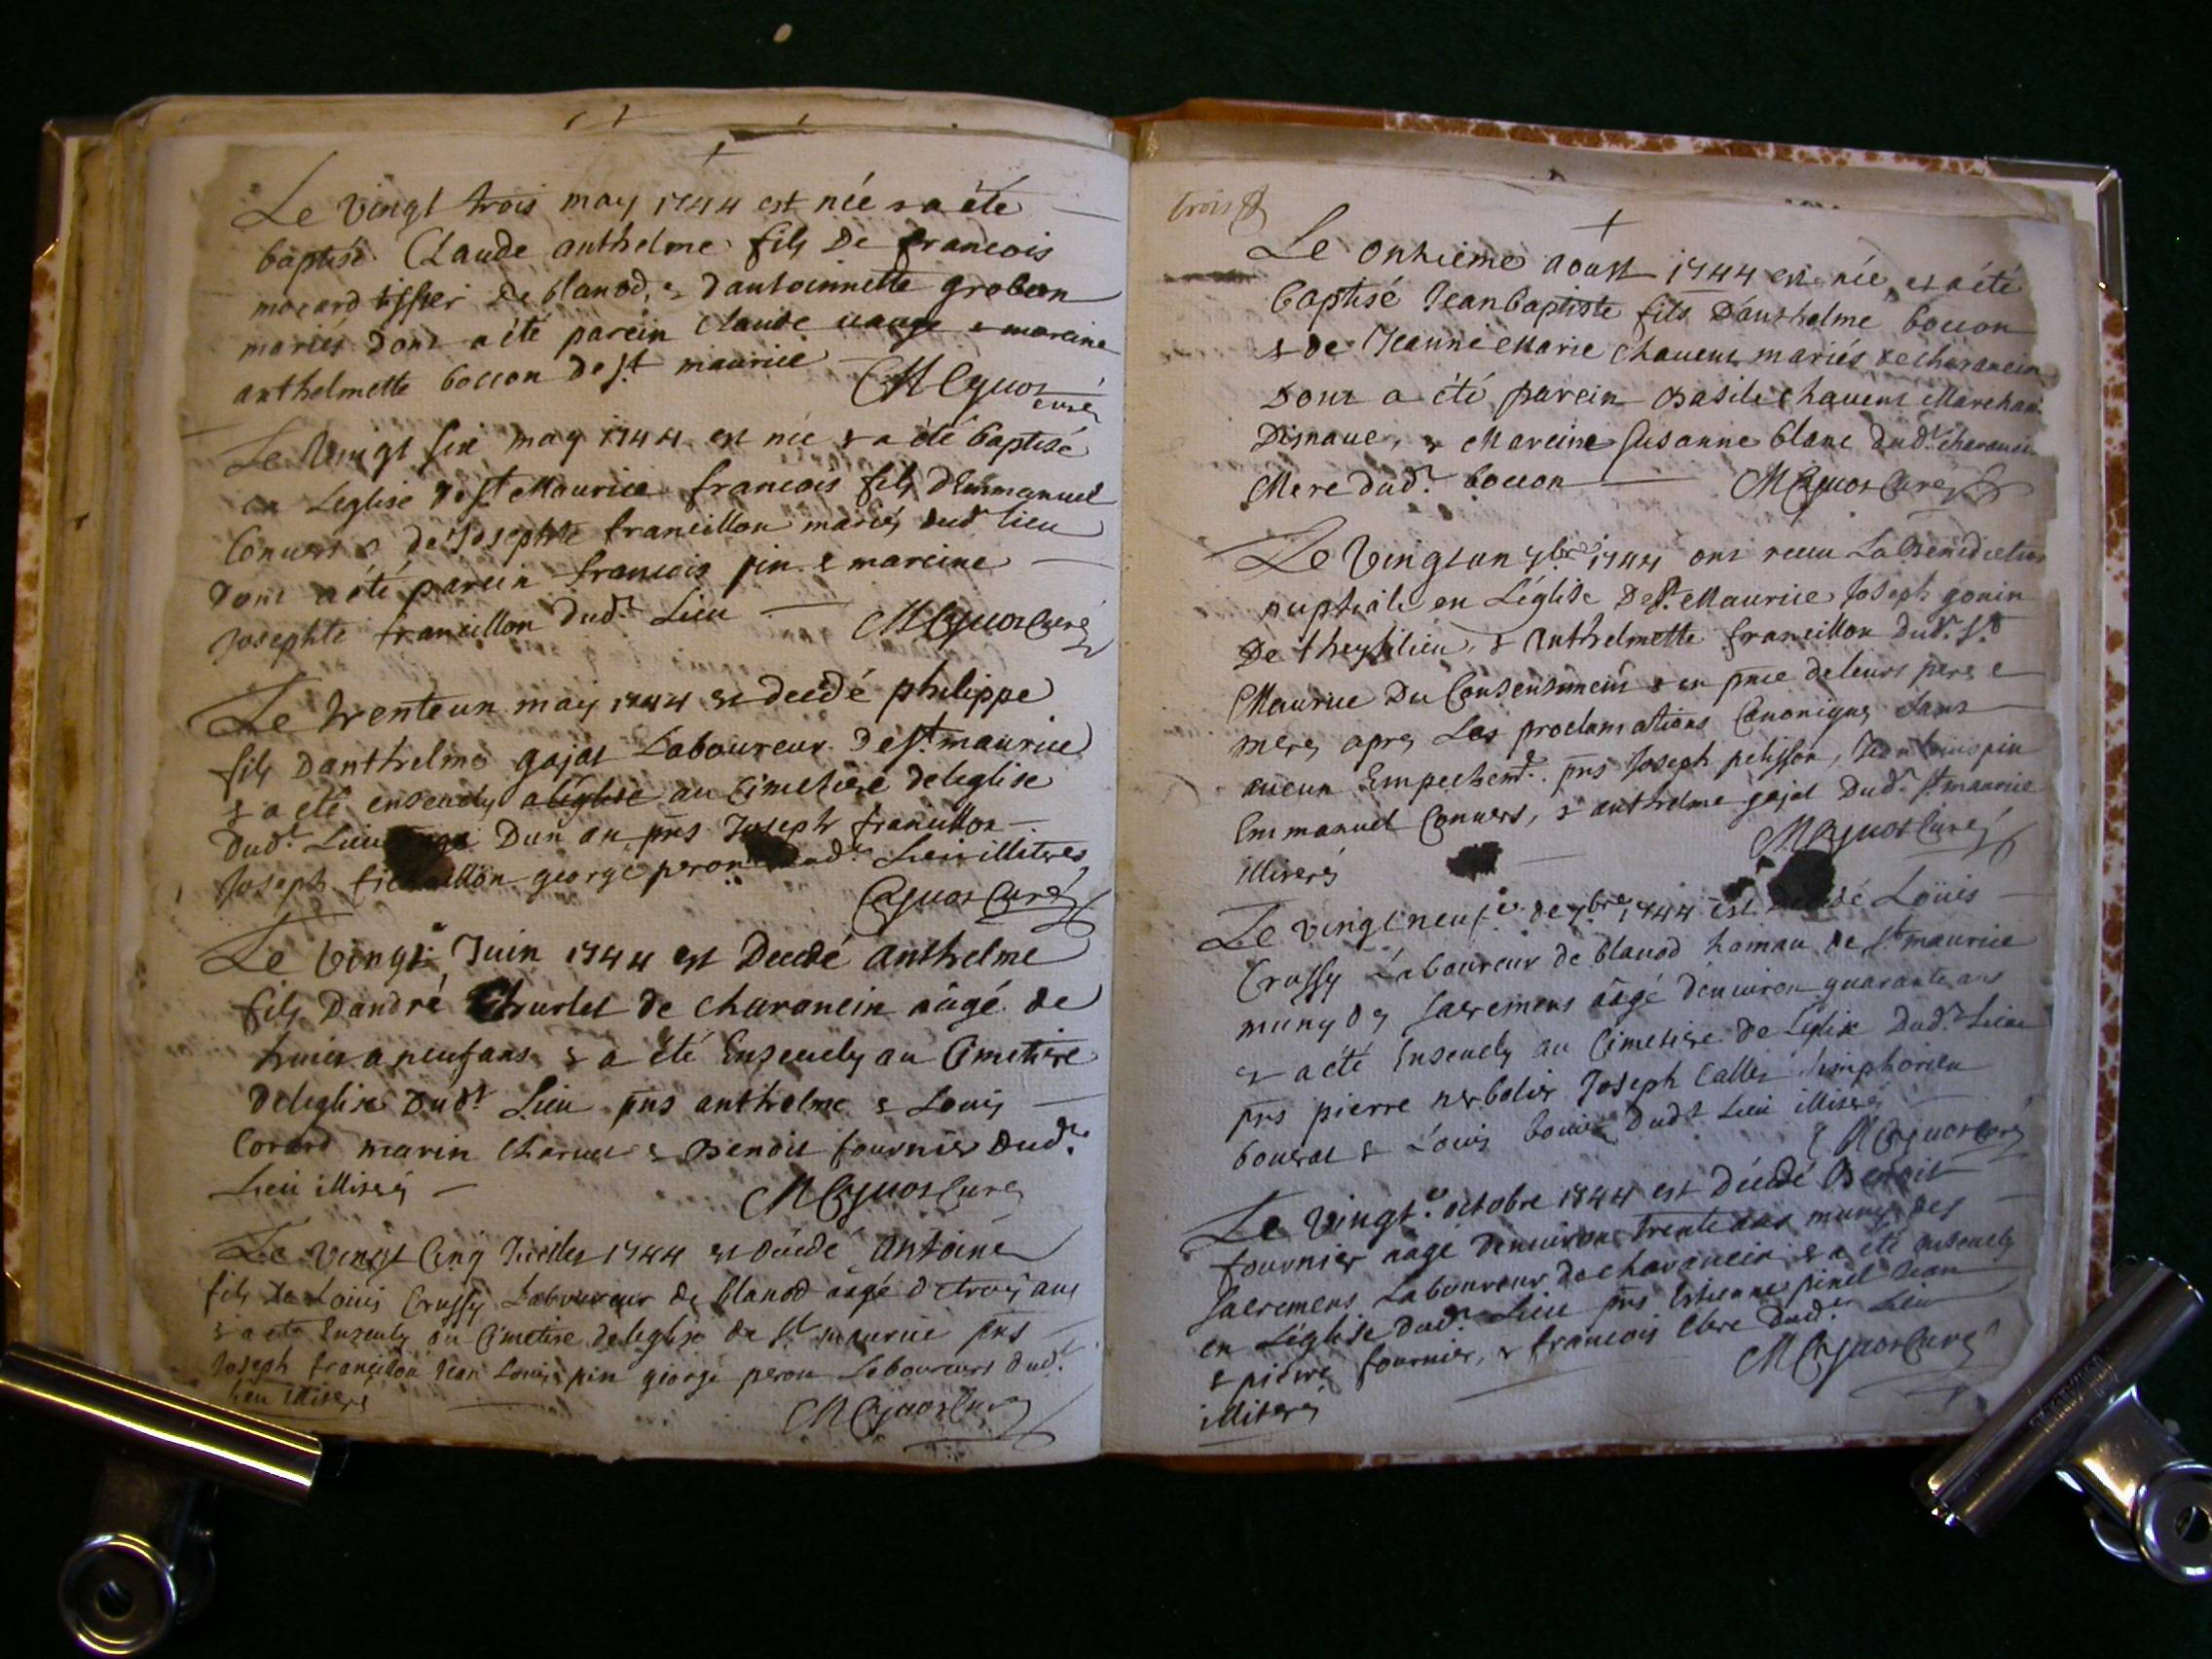 Le vingt trois may 1744 est née & a été
baptisé Claude anthelme fils De francois
mocard tissier De blanod, & d'antoinnette grobon
mariés dont a été parein Claude & mareine
anthelmette bocon de st maurice
curé
Le vingt six may 1744 est née & a été baptisé
en Leglise de st Maurice francois fils d'Emmanuel
Convers & de Josephte francillon mariés dud.t lieu
dont a été parein francois pin & mareine
Josephte francillon dud.t Lieu Curé
Le trente un may 1744 est decedé philippe
fils d'anthelme gajat Laboureur de st maurice
& a eté ensevely a léglise au Cimetiere de leglise
dud.t Lieu agé d'un an pns Joseph francillon
Joseph george peron dud.t Lieu illiteres
Curé
Le vingt.e Juin 1744 est Decedé anthelme
fils D'andré de Charancin aâgé de
huict a neuf ans & a été Ensevely au Cimetiere
de leglise Dud.t Lieu pns anthelme & Louis
Corard marin Charvet & Benoit fournier Dud.t
Lieu illiterés Curé
Le vingt Cinq Juillet 1744 est décédé antoine
fils de Louis Crussy Laboureur de blanod aâgé de trois ans
& a eté Ensevely au Cimetiere de leglise de st maurice pns
Joseph francillon Jean Louis pin george peron Laboureurs dud.t
lieu illiterés Curé
trois
Le onzieme aoust 1744 est née, et a été
baptisé Jean baptiste fils D'anthelme bocon
& de Jeanne Marie Chavent mariés de charancin
Dont a été parein Basile chavent Marchan
Disnave, & Mareine Susanne blanc dud.t charancin
Mere dud.t bocon Curé
Le vingt un 7bre 1744 ont recu La Benediction
nuptiale en L'église De st Maurice Joseph gonin
De theyzilieu, & anthelmette francillon dud.t st
Maurice Du Consentement & en pnce de leurs pere &
mere, apres Les proclamations Canoniques sans
aucun Empechem.t pns Joseph pelisson, Jean louis pin
Emmanuel Convers, & anthelme gajat Dud.t st maurice
illiterés Curé
Le vingt neuf.e de 7bre 1744 est decedé Loüis
Crussy Laboureur de blanod hamau de st maurice
muny des sacremens aâgé d'environ quarante ans
& a été Ensevely au Cimetiere de L'eglise Dud.t Lieu
pns pierre Joseph Callet Simphorien
bouvat & Louis Dud.t Lieu illiterés
Curé
Le vingt.e octobre 1744 est Décédé Benoit
fournier aagé d'environ trente ans muny des
sacremens Laboureur de charancin & a été ensevely
en L'église dud.t Lieu pns Estienne pinel Jean
& pierre fournier, & francois Clere Dud.t Lieu
illiterés Curé